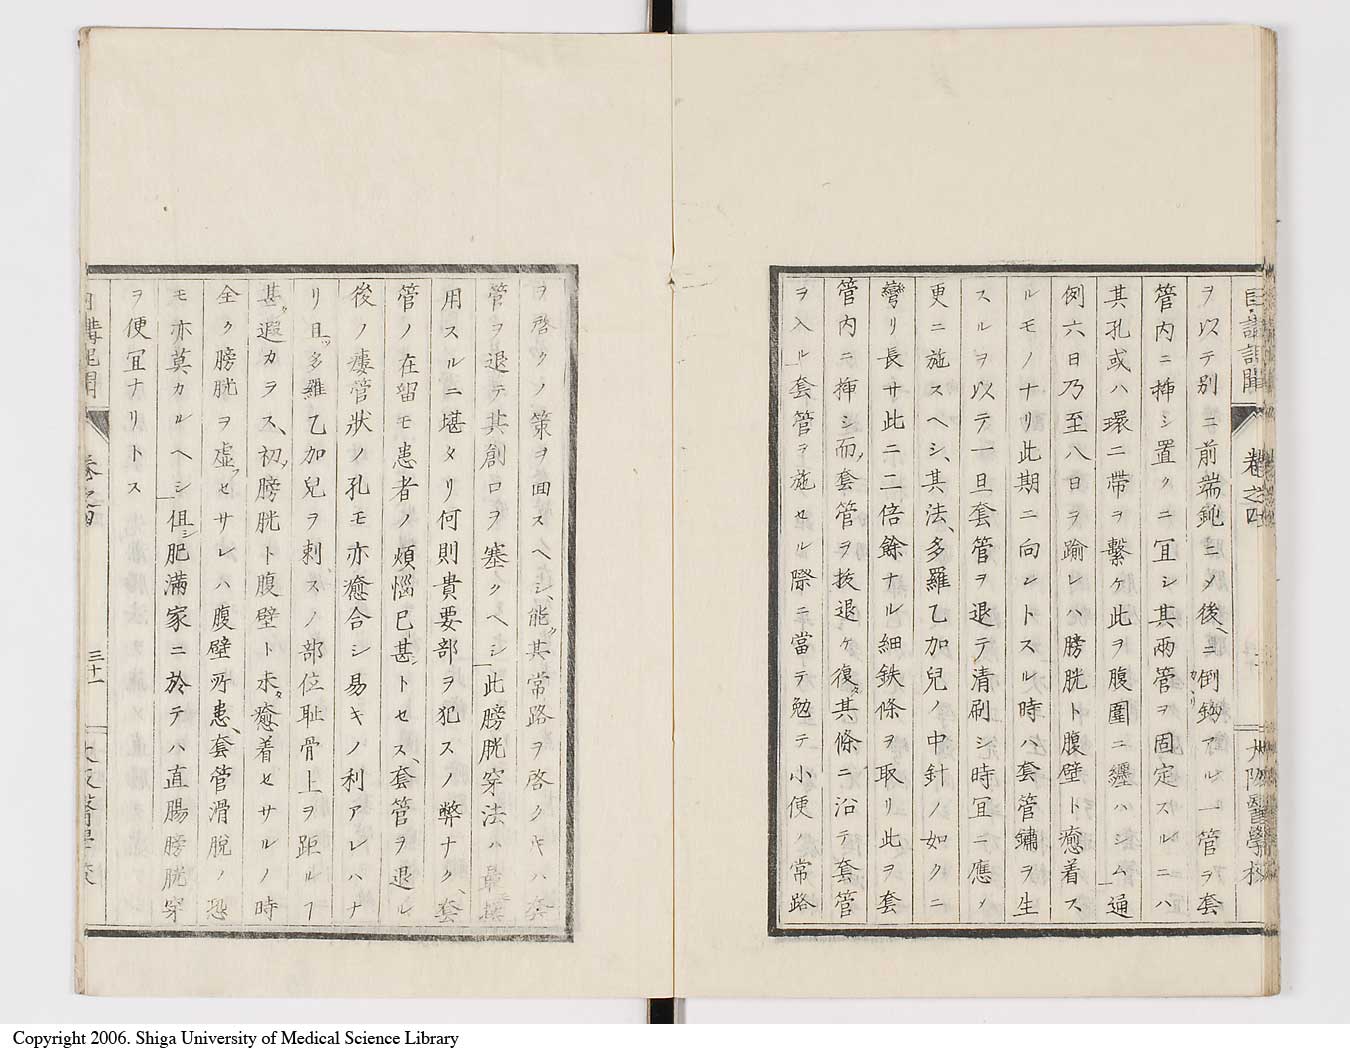 日講記聞 卷之四 大阪醫學校
ヲ以テ別ニ前端鈍ニメ後ヘニ倒鈎カヽリアル一管ヲ套
管内ニ挿シ置クニ冝シ其兩管ヲ固定スルニハ
其孔或ハ環ニ帶ヲ繫ケ此ヲ腹圍ニ纒ハシム通
例六日乃至八日ヲ踰レハ膀胱ト腹壁ト癒着ス
ルモノナリ此期ニ向ントスル時ハ套管鏽ヲ生
スルヲ以テ一旦套管ヲ退テ清刷シ時冝ニ應メ
更ニ施スヘシ、其法、多羅乙加兒ノ中針ノ如クニ
彎リ長サ此ニ二倍餘ナル細鉄條ヲ取リ此ヲ套
管内ニ挿シ而套管ヲ抜退ケ復其條ニ沿テ套管
ヲ入ル套管ヲ施セル際ニ當テ勉テ小便ノ常路
ヲ啓クノ策ヲ面スヘシ、能其常路ヲ啓クキハ套
管ヲ退テ其創口ヲ塞クヘシ此膀胱穿法ハ最撰
用スルニ堪タリ何則貴要部ヲ犯スノ弊ナク、套
管ノ在留モ患者ノ煩惱已甚トセス、套管ヲ退ル
後ノ瘻管狀ノ孔モ亦癒合シ易キノ利アレハナ
リ且多羅乙加兒ヲ刺スノ部位耻骨上ヲ距ルフ
甚遐カラス、初膀胱ト腹壁ト未癒着セサルノ時
全ク膀胱ヲ虚セサレハ腹壁所患、套管滑脱ノ恐
モ亦莫カルヘシ但肥滿家ニ於テハ直腸膀胱穿
ヲ便冝ナリトス
日講記聞 卷之四 三十一 大阪醫學校
Copyright 2006. Shiga University of Medical Science Library